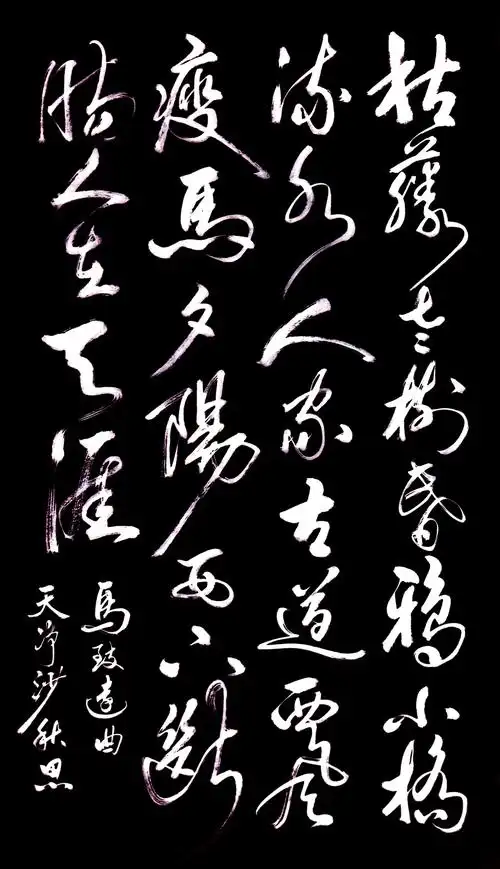 枯藤老樹昏鴉小橋
流水人家古道西風
瘦馬夕陽西下斷
腸人在天涯
馬致遠曲
天淨沙秋思